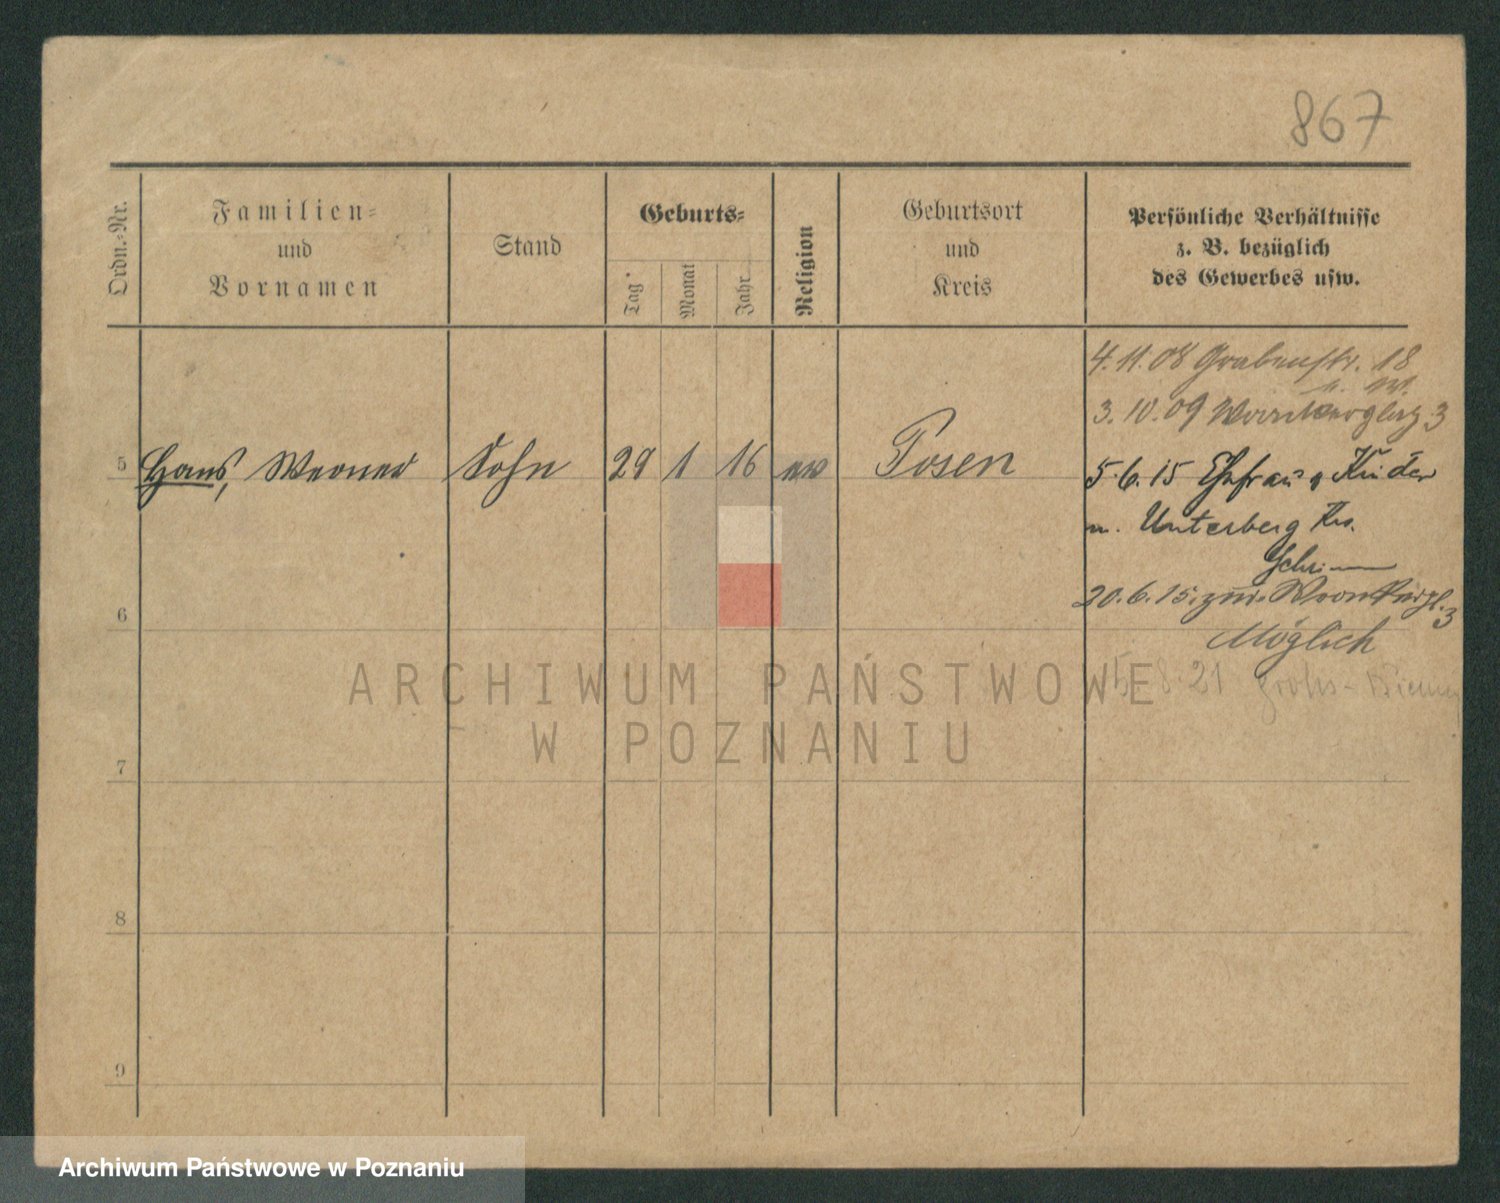 867
Ordn.-Nr.
Familien-
und
Vornamen
Stand
Geburts-
Tag
Monat
Jahr
Religion
Geburtsort
und
Kreis
Persönliche Verhältnisse
z. B. bezüglich
des Gewerbes usw.
4. 11. 08 Grabenstr. 18
3. 10. 09 3
5 Hans, Werner Sohn 29 1 16 ev Posen
5. 6. 15 Ehefrau Kinder
n. Unterberg Krs.
Schrimm
20. 6. 15. zur. 3
6
Möglich
8. 21
7
8
9
ARCHIWUM PAŃSTWOWE
W POZNANIU
Archiwum Państwowe w Poznaniu